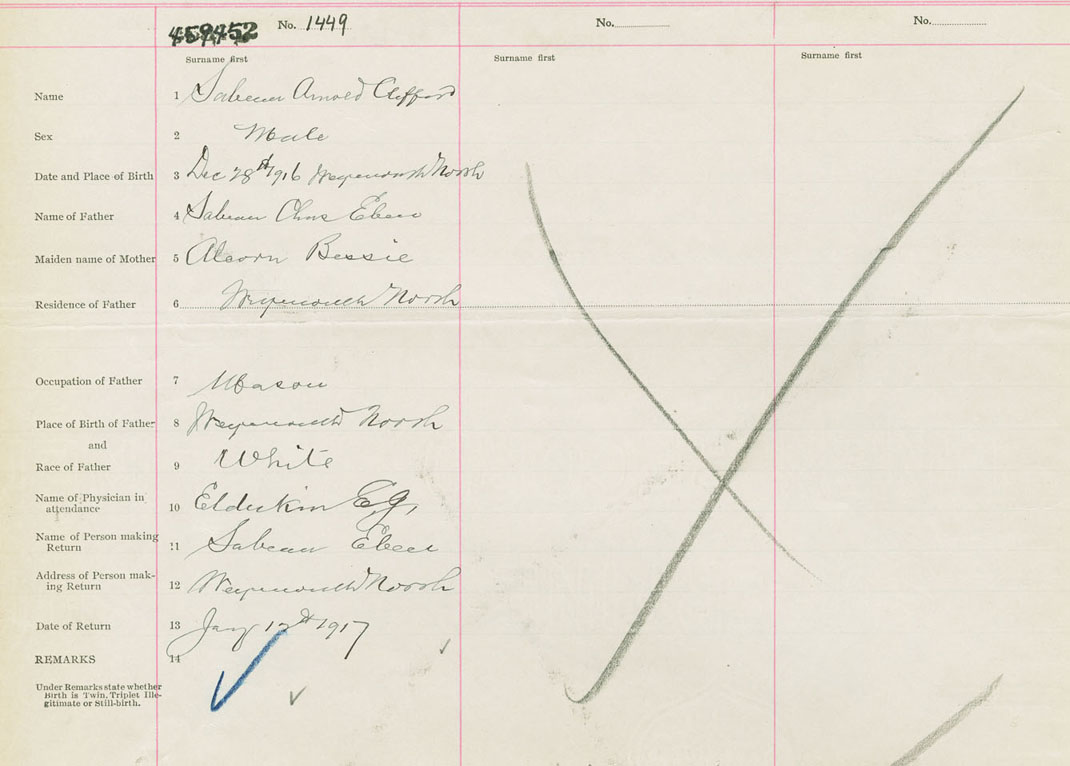 No. 1449 No. No.
Surname first Surname first Surname first
Name 1 Sabean Arnold Clifford
Sex 2 Male
Date and Place of Birth 3 Dec 28th 1916 Weymouth North
Name of Father 4 Sabean Chas Eben
Maiden name of Mother 5 Alcorn Bessie
Residence of Father 6 Weymouth North
Occupation of Father 7 Mason
Place of Birth of Father 8 Weymouth North
and
Race of Father 9 White
Name of Physician in
attendance 10 Elderkin E.J.
Name of Person making
Return 11 Sabean Eben
Address of Person mak-
ing Return 12 Weymouth North
Date of Return 13 Jany 12th 1917
REMARKS 14
Under Remarks state whether
Birth is Twin, Triplet Ille-
gitimate or Still-birth.